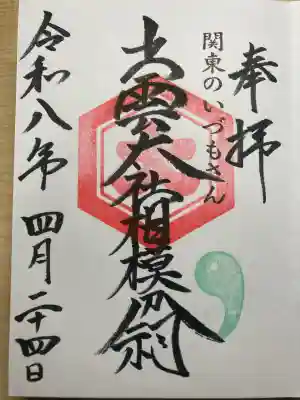 奉拝
関東のいづもさん
出雲大社相模分祠
令和八年 四月二十四日